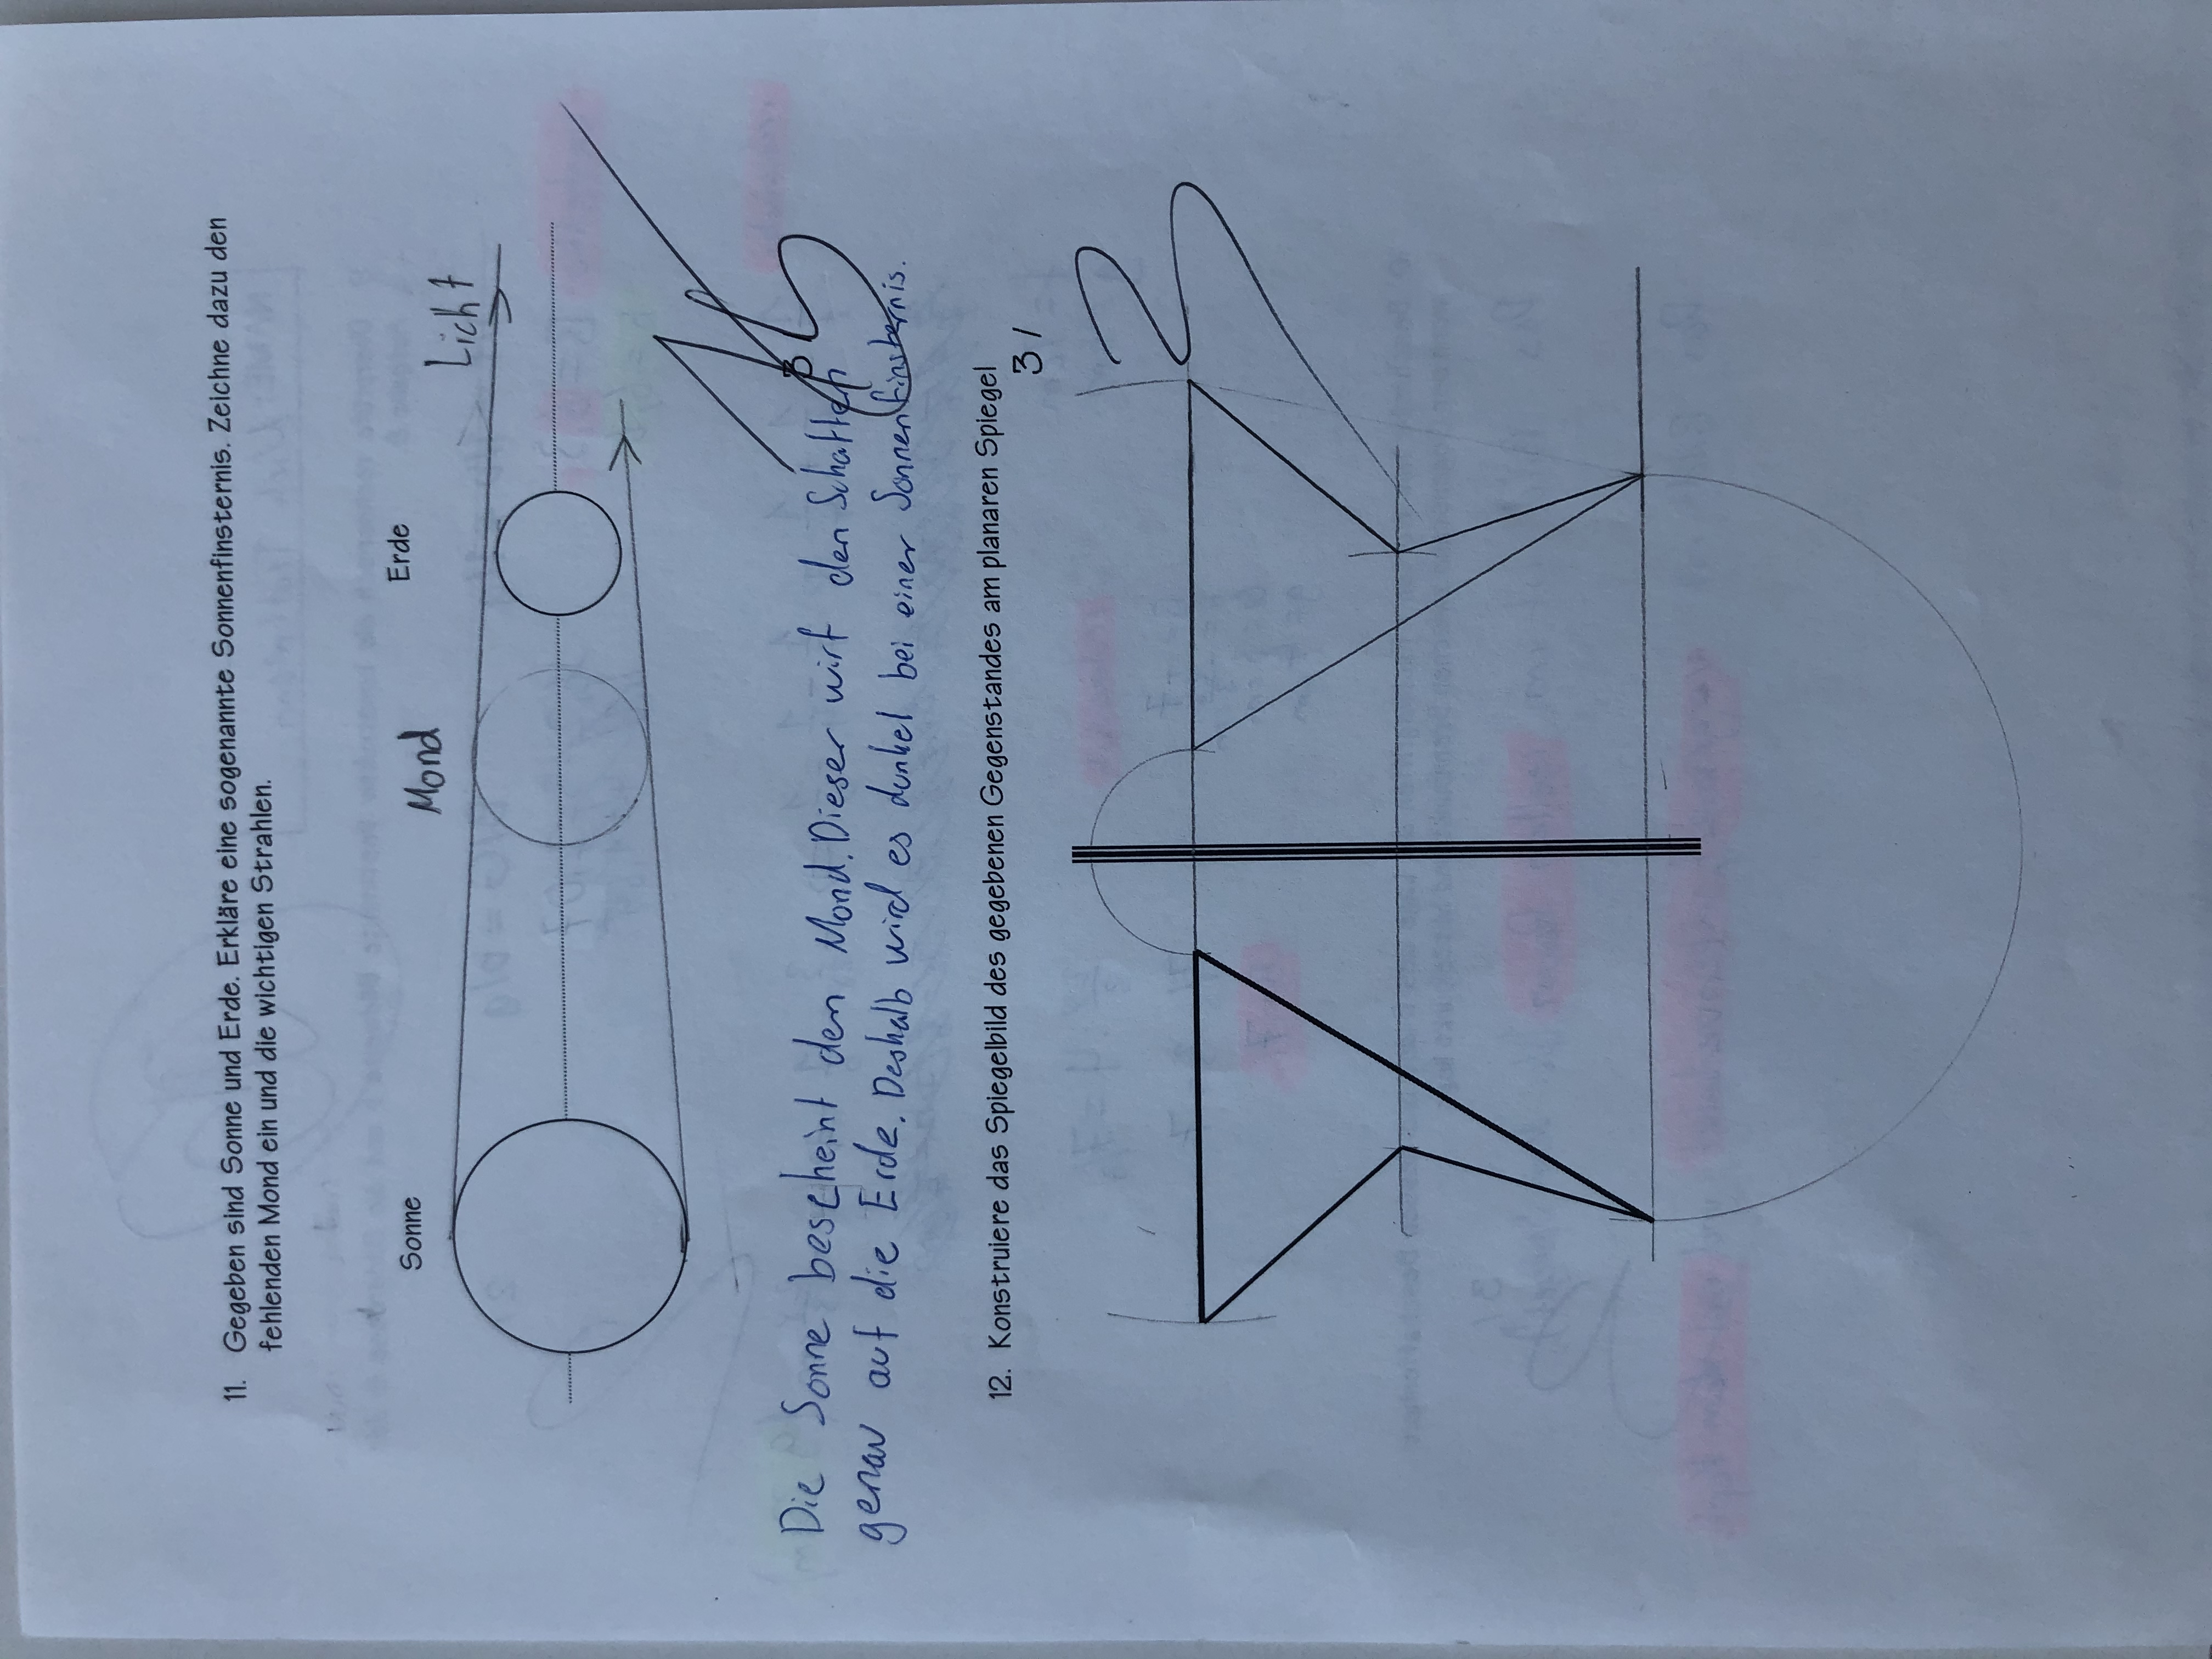 11. Gegeben sind Sonne und Erde. Erkläre eine sogenannte Sonnenfinsternis. Zeichne dazu den
fehlenden Mond ein und die wichtigen Strahlen.
Sonne
Mond
Erde
Licht
3
Die Sonne bescheint den Mond. Dieser wirf den Schatten
genau auf die Erde. Deshalb wird es dunkel bei einer Sonnenfinsternis.
12. Konstruiere das Spiegelbild des gegebenen Gegenstandes am planaren Spiegel
3 /
3